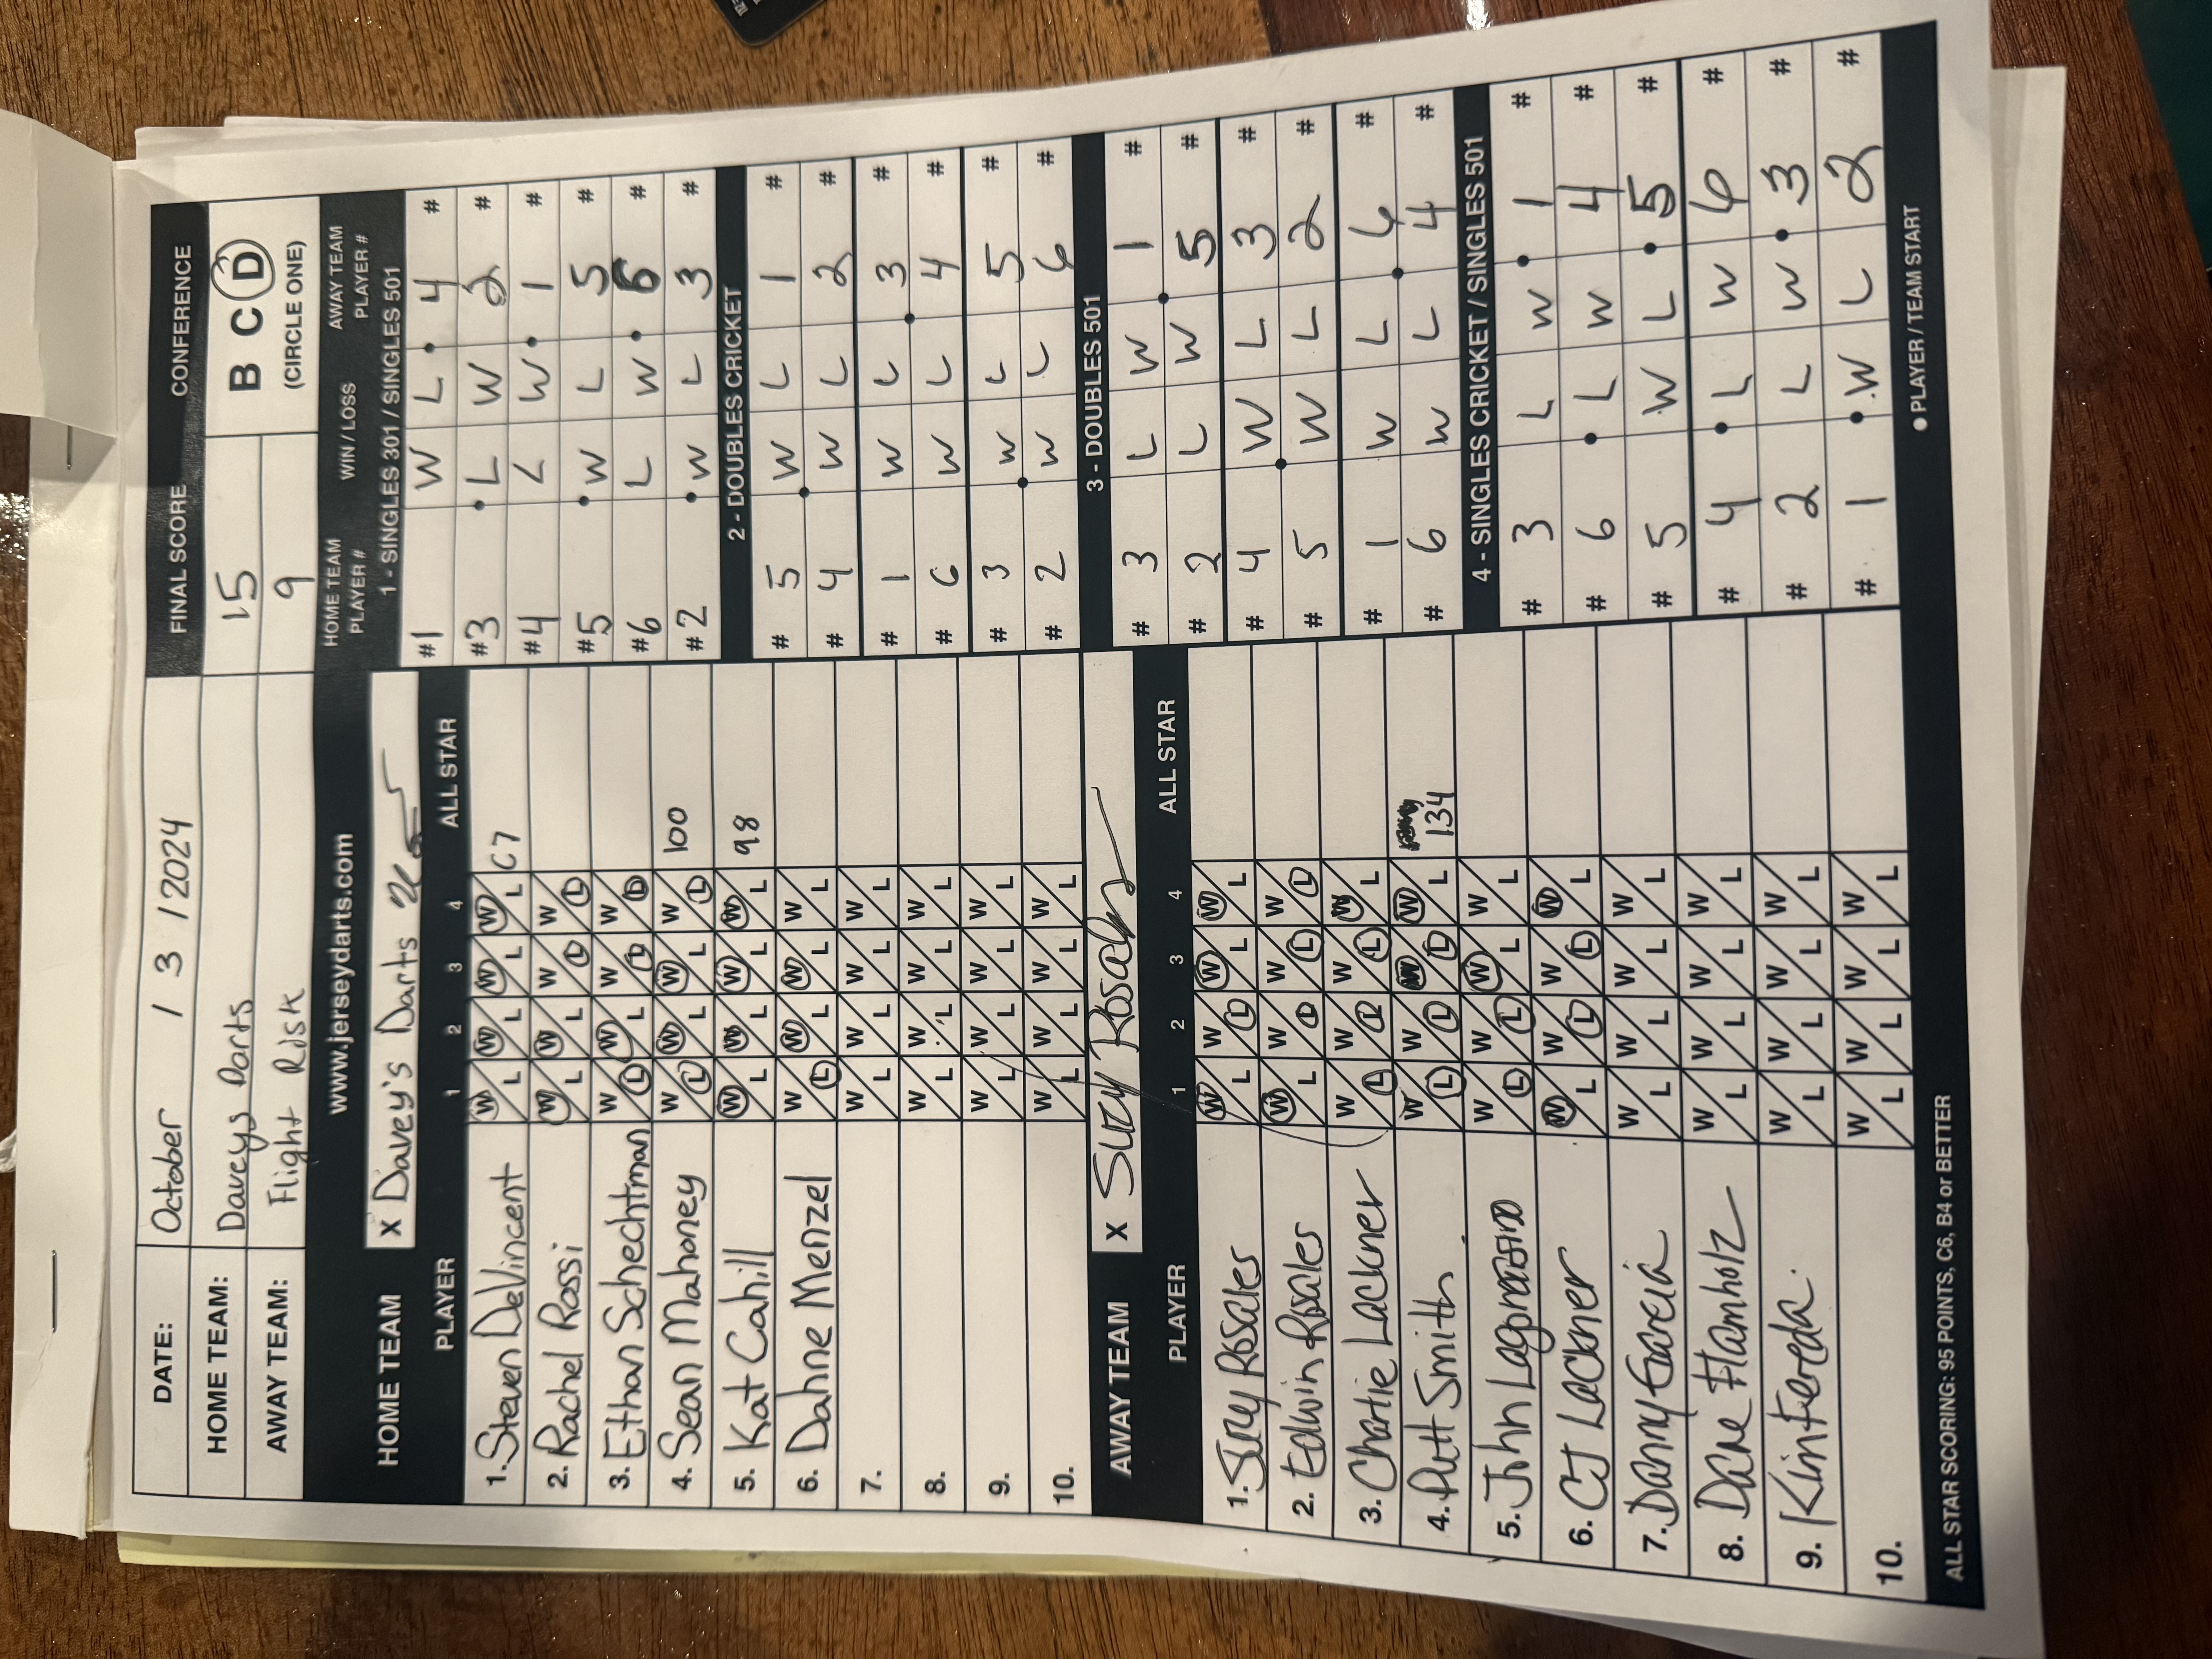 DATE: October / 3 / 2024 FINAL SCORE CONFERENCE
HOME TEAM: Daveys Darts 15 B C D
AWAY TEAM: Flight Risk 9 (CIRCLE ONE)
www.jerseydarts.com
HOME TEAM X Davey's Darts
PLAYER 1 2 3 4 ALL STAR
1. Steven DeVincent W/L W/L W/L W/L C7
2. Rachel Rossi W/L W/L W/L W/L
3. Ethan Schechtman W/L W/L W/L W/L
4. Sean Mahoney W/L W/L W/L W/L 100
5. Kat Cahill W/L W/L W/L W/L 98
6. Dahne Menzel W/L W/L W/L W/L
7. W/L W/L W/L W/L
8. W/L W/L W/L W/L
9. W/L W/L W/L W/L
10. W/L W/L W/L W/L
AWAY TEAM X Suzy Rosales
PLAYER 1 2 3 4 ALL STAR
1. Suzy Rosales W/L W/L W/L W/L
2. Edwin Rosales W/L W/L W/L W/L
3. Charlie Lackner W/L W/L W/L W/L
4. Smith W/L W/L W/L W/L 134
5. John W/L W/L W/L W/L
6. CJ Lackner W/L W/L W/L W/L
7. Danny Garcia W/L W/L W/L W/L
8. Dane Flamholz W/L W/L W/L W/L
9. Kim W/L W/L W/L W/L
10. W/L W/L W/L W/L
HOME TEAM PLAYER # WIN / LOSS AWAY TEAM PLAYER #
1 - SINGLES 301 / SINGLES 501
#1 W L 4 #
#3 L W 2 #
#4 L W 1 #
#5 W L 5 #
#6 L W 6 #
#2 W L 3 #
2 - DOUBLES CRICKET
# 5 W L 1 #
# 4 W L 2 #
# 1 W L 3 #
# 6 W L 4 #
# 3 W L 5 #
# 2 W L 6 #
3 - DOUBLES 501
# 3 L W 1 #
# 2 L W 5 #
# 4 W L 3 #
# 5 W L 2 #
# 1 W L 6 #
# 6 W L 4 #
4 - SINGLES CRICKET / SINGLES 501
# 3 L W 1 #
# 6 L W 4 #
# 5 W L 5 #
# 4 L W 6 #
# 2 L W 3 #
# 1 W L 2 #
ALL STAR SCORING: 95 POINTS, C6, B4 or BETTER ● PLAYER / TEAM START